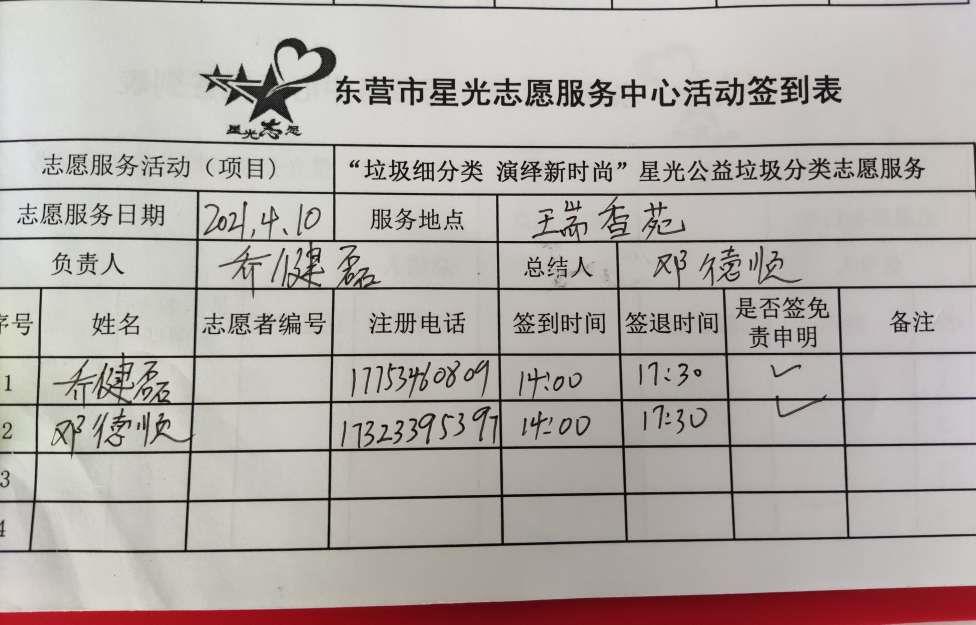 星光志愿
东营市星光志愿服务中心活动签到表
志愿服务活动（项目） “垃圾细分类 演绎新时尚”星光公益垃圾分类志愿服务
志愿服务日期 2021.4.10 服务地点 王端香苑
负责人 乔健磊 总结人 邓德顺
序号 姓名 志愿者编号 注册电话 签到时间 签退时间 是否签免责申明 备注
1 乔健磊 17753460809 14:00 17:30 ✓
2 邓德顺 17323395397 14:00 17:30 ✓
3
4